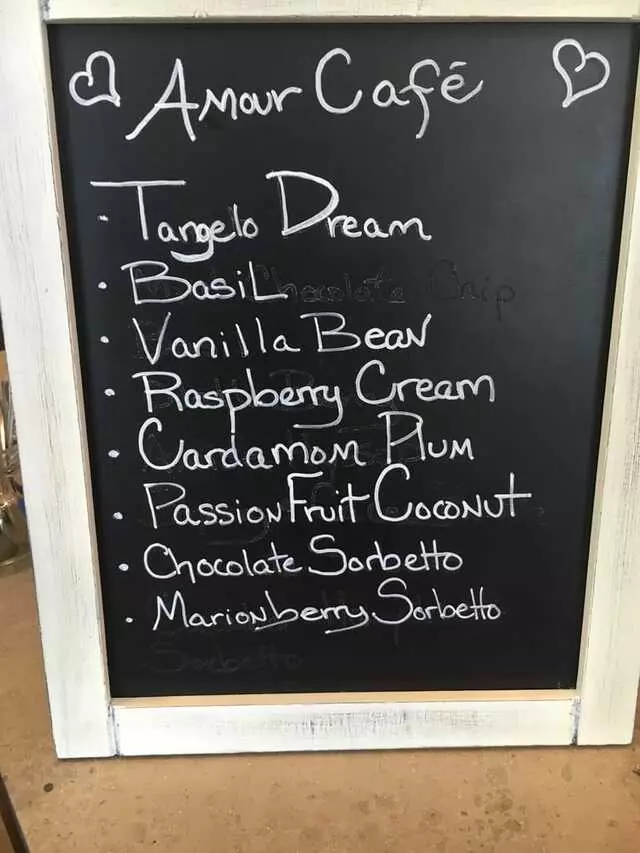 Amour Café
• Tangelo Dream
• Basil Chocolate Chip
• Vanilla Bean
• Raspberry Cream
• Cardamom Plum
• Passion Fruit Coconut
• Chocolate Sorbetto
• Marionberry Sorbetto
Sorbetto